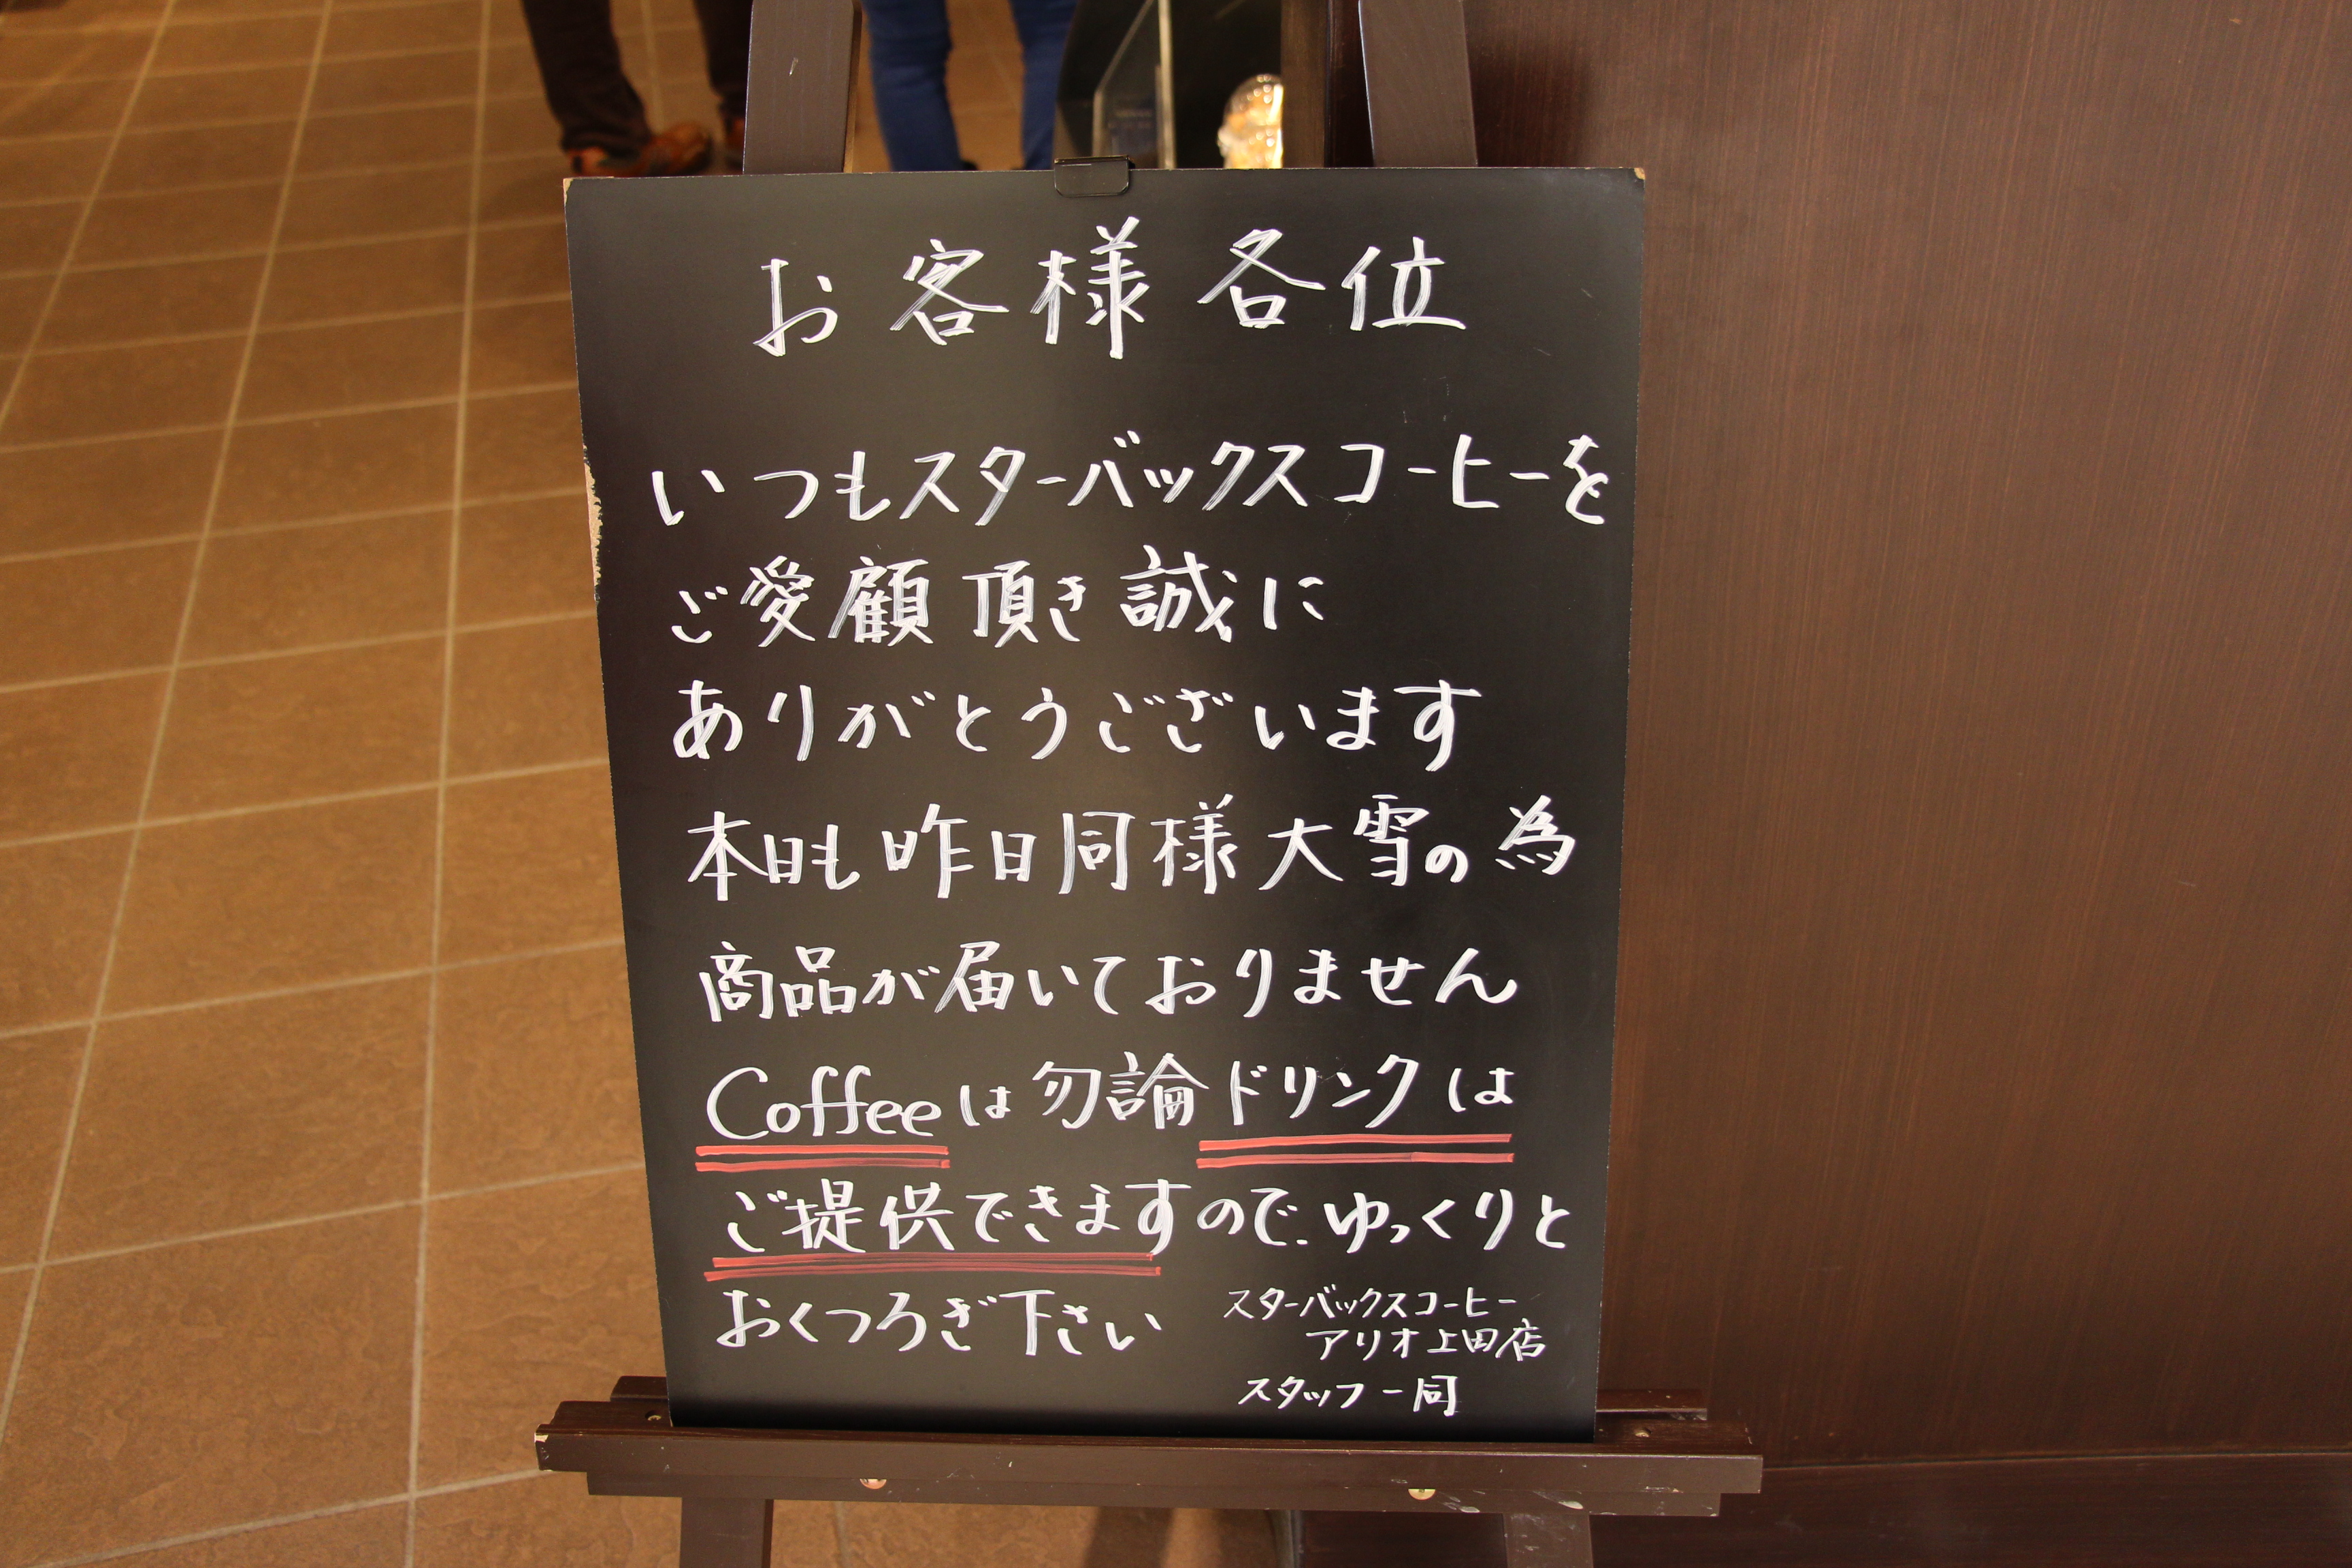 お客様各位
いつもスターバックスコーヒーを
ご愛顧頂き誠に
ありがとうございます
本日も昨日同様大雪の為
商品が届いておりません
Coffeeは勿論ドリンクは
ご提供できますので、ゆっくりと
おくつろぎ下さい
スターバックスコーヒー
アリオ上田店
スタッフ一同